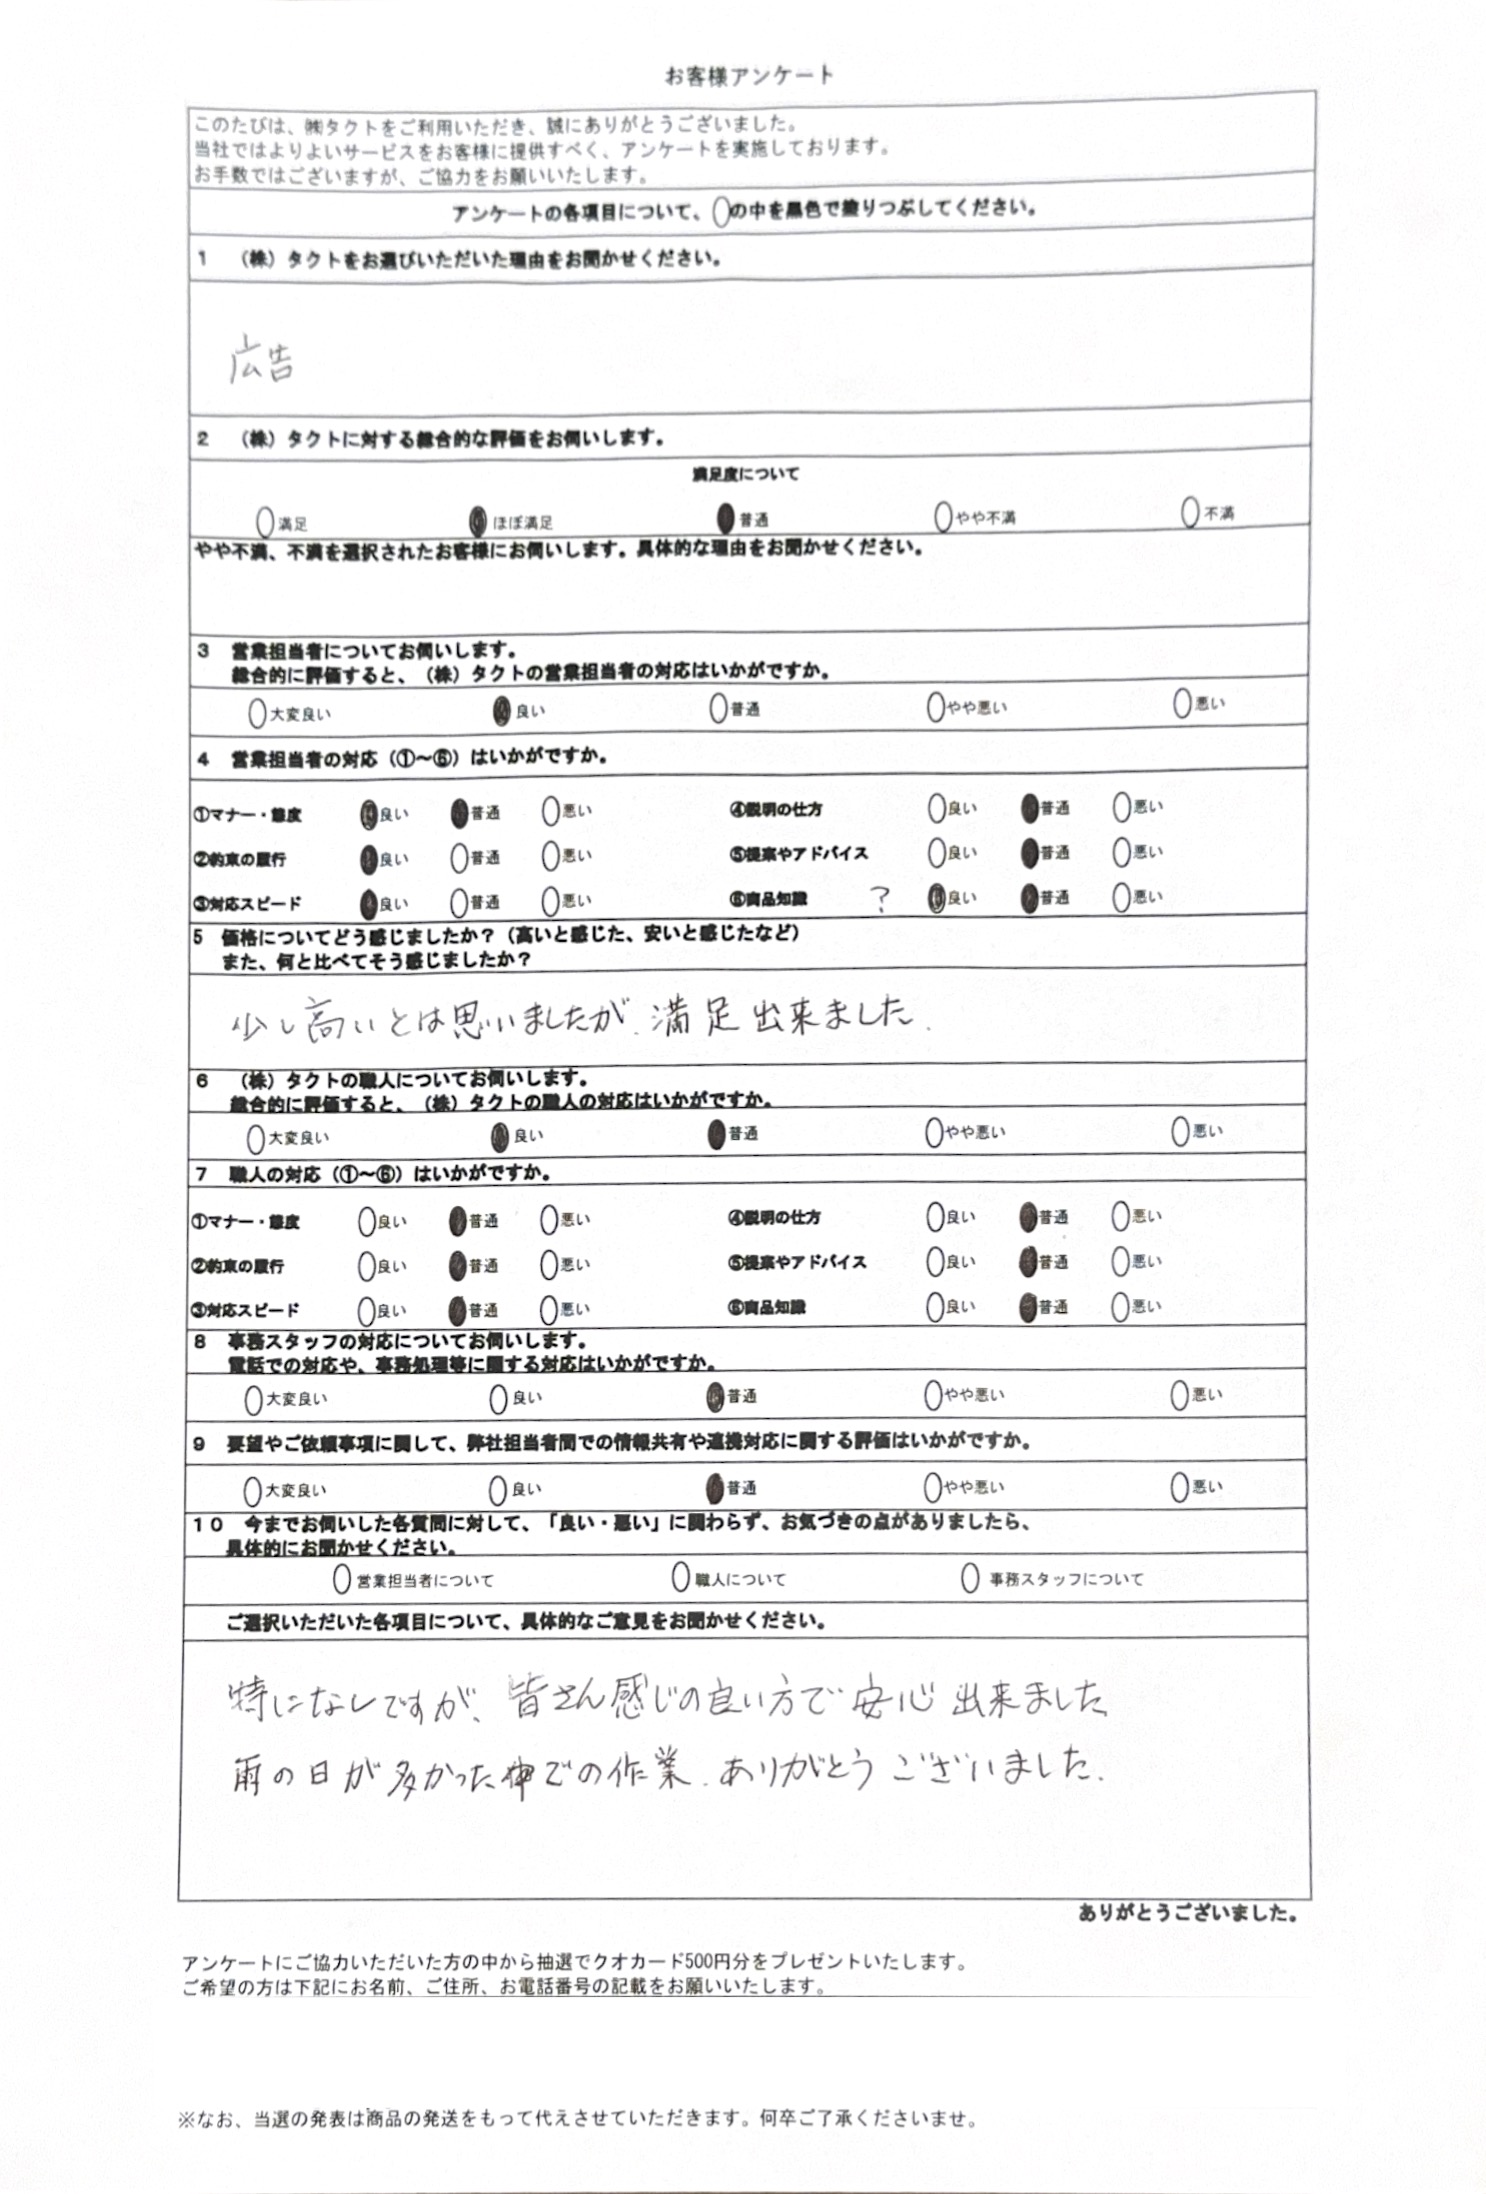 お客様アンケート
このたびは、㈱タクトをご利用いただき、誠にありがとうございました。
当社ではよりよいサービスをお客様に提供すべく、アンケートを実施しております。
お手数ではございますが、ご協力をお願いいたします。
アンケートの各項目について、○の中を黒色で塗りつぶしてください。
1 （株）タクトをお選びいただいた理由をお聞かせください。
広告
2 （株）タクトに対する総合的な評価をお伺いします。
満足度について
満足 ほぼ満足 普通 やや不満 不満
やや不満、不満を選択されたお客様にお伺いします。具体的な理由をお聞かせください。
3 営業担当者についてお伺いします。
総合的に評価すると、（株）タクトの営業担当者の対応はいかがですか。
大変良い 良い 普通 やや悪い 悪い
4 営業担当者の対応（①～⑥）はいかがですか。
①マナー・態度 良い 普通 悪い ④説明の仕方 良い 普通 悪い
②約束の履行 良い 普通 悪い ⑤提案やアドバイス 良い 普通 悪い
③対応スピード 良い 普通 悪い ⑥商品知識 ? 良い 普通 悪い
5 価格についてどう感じましたか？（高いと感じた、安いと感じたなど）
また、何と比べてそう感じましたか？
少し高いとは思いましたが、満足出来ました。
6 （株）タクトの職人についてお伺いします。
総合的に評価すると、（株）タクトの職人の対応はいかがですか。
大変良い 良い 普通 やや悪い 悪い
7 職人の対応（①～⑥）はいかがですか。
①マナー・態度 良い 普通 悪い ④説明の仕方 良い 普通 悪い
②約束の履行 良い 普通 悪い ⑤提案やアドバイス 良い 普通 悪い
③対応スピード 良い 普通 悪い ⑥商品知識 良い 普通 悪い
8 事務スタッフの対応についてお伺いします。
電話での対応や、事務処理等に関する対応はいかがですか。
大変良い 良い 普通 やや悪い 悪い
9 要望やご依頼事項に関して、弊社担当者間での情報共有や連携対応に関する評価はいかがですか。
大変良い 良い 普通 やや悪い 悪い
10 今までお伺いした各質問に対して、「良い・悪い」に関わらず、お気づきの点がありましたら、
具体的にお聞かせください。
営業担当者について 職人について 事務スタッフについて
ご選択いただいた各項目について、具体的なご意見をお聞かせください。
特になしですが、皆さん感じの良い方で安心出来ました
雨の日が多かった中での作業、ありがとうございました。
ありがとうございました。
アンケートにご協力いただいた方の中から抽選でクオカード500円分をプレゼントいたします。
ご希望の方は下記にお名前、ご住所、お電話番号の記載をお願いいたします。
※なお、当選の発表は商品の発送をもって代えさせていただきます。何卒ご了承くださいませ。